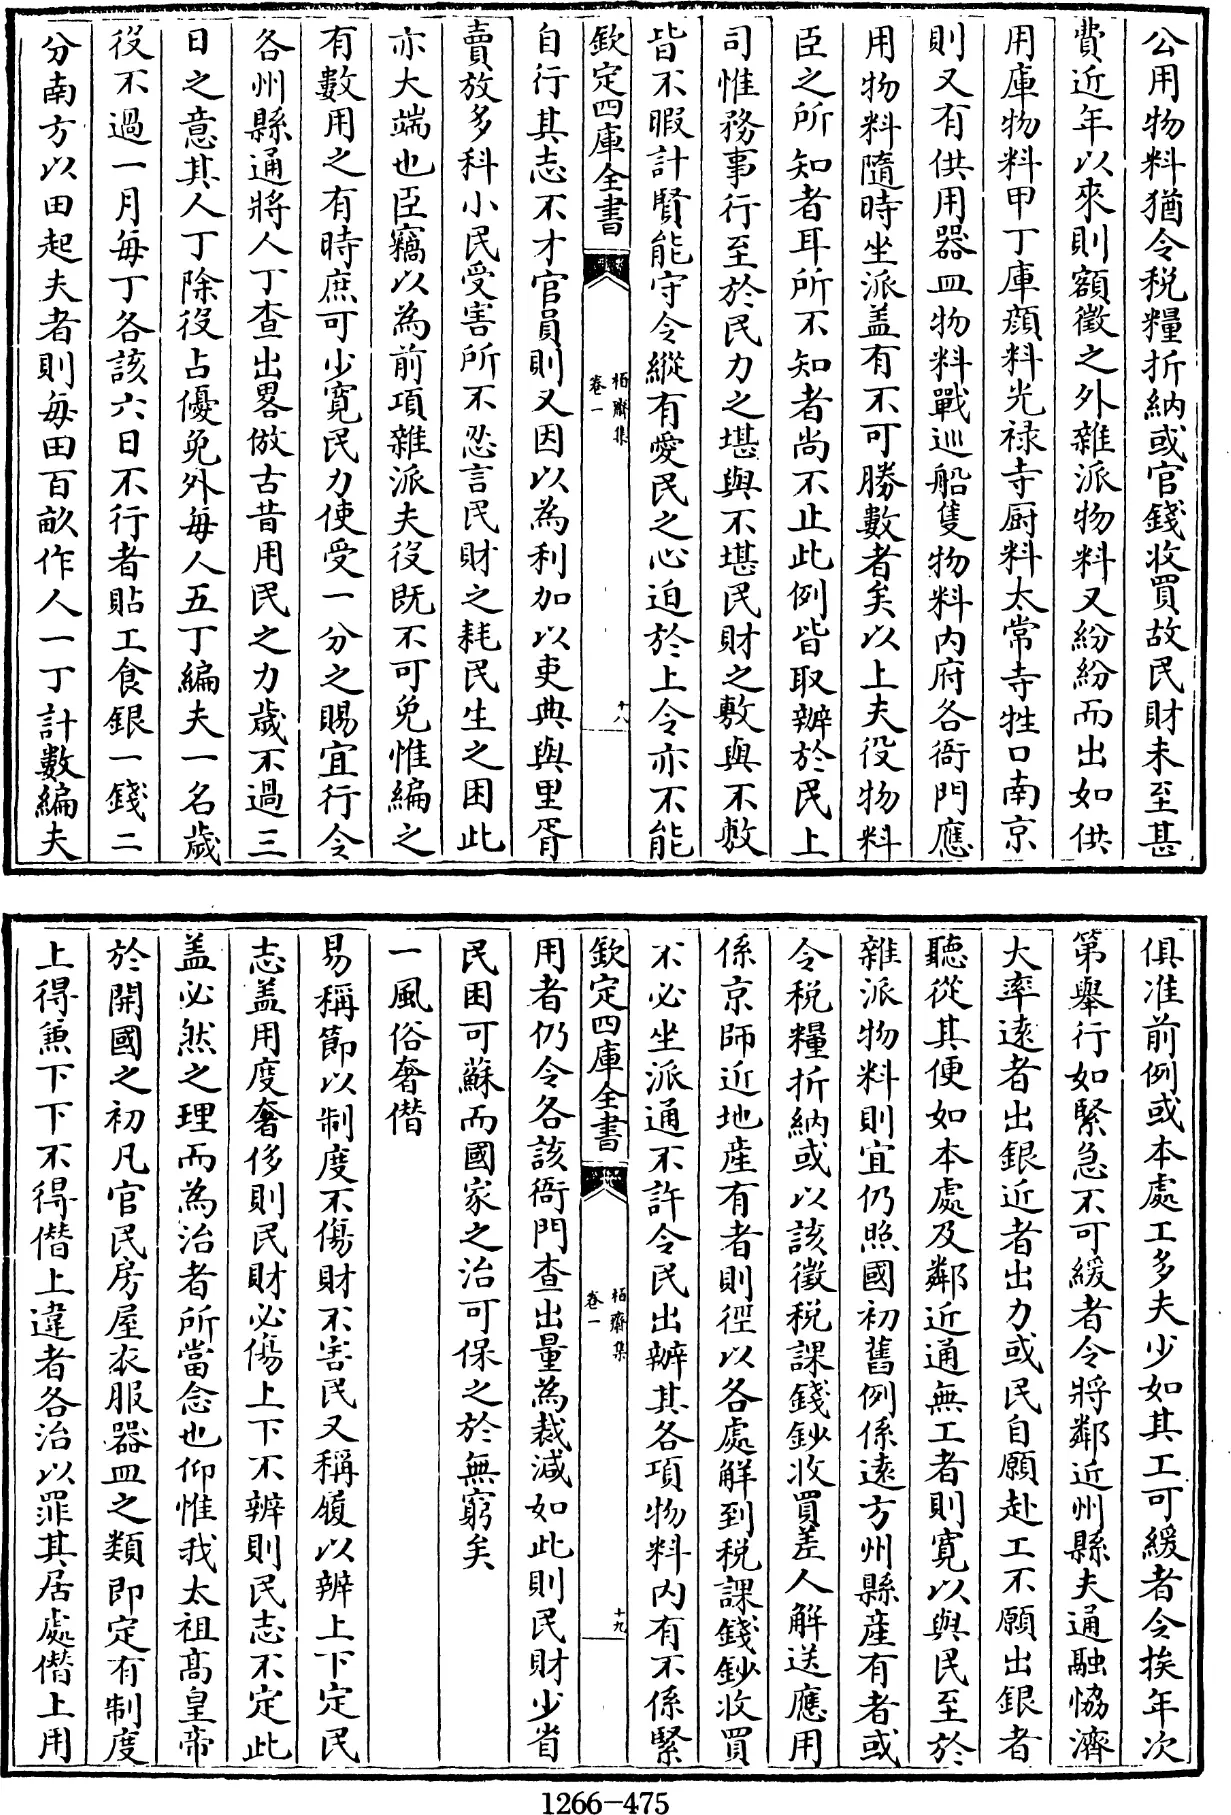 公用物料猶令税糧折納或官錢收買故民財未至甚
費近年以來則額徵之外雜派物料又紛紛而出如供
用庫物料甲丁庫顔料光禄寺厨料太常寺牲口南京
則又有供用器皿物料戰巡船隻物料内府各衙門應
用物料隨時坐派盖有不可勝數者矣以上夫役物料
臣之所知者耳所不知者尚不止此例皆取辦於民上
司惟務事行至於民力之堪與不堪民財之敷與不敷
皆不暇計賢能守令縱有愛民之心迫於上令亦不能
欽定四庫全書
栢齋集
卷一
十八
自行其志不才官員則又因以為利加以吏典與里胥
賣放多科小民受害所不忍言民財之耗民生之困此
亦大端也臣竊以為前項雜派夫役既不可免惟編之
有數用之有時庶可少寬民力使受一分之賜宜行令
各州縣通將人丁查出畧倣古昔用民之力歲不過三
日之意其人丁除役占優免外每人五丁編夫一名歲
役不過一月每丁各該六日不行者貼工食銀一錢二
分南方以田起夫者則每田百畝作人一丁計數編夫
俱准前例或本處工多夫少如其工可緩者令挨年次
第舉行如緊急不可緩者令將鄰近州縣夫通融恊濟
大率遠者出銀近者出力或民自願赴工不願出銀者
聽從其便如本處及鄰近通無工者則寛以與民至於
雜派物料則宜仍照國初舊例係遠方州縣産有者或
令税糧折納或以該徵税課錢鈔收買差人解送應用
係京師近地産有者則徑以各處解到税課錢鈔收買
不必坐派通不許令民出辦其各項物料内有不係緊
欽定四庫全書
栢齋集
卷一
十九
用者仍令各該衙門查出量為裁減如此則民財少省
民困可蘇而國家之治可保之於無窮矣
一風俗奢僭
易稱節以制度不傷財不害民又稱履以辨上下定民
志盖用度奢侈則民財必傷上下不辨則民志不定此
盖必然之理而為治者所當念也仰惟我太祖髙皇帝
於開國之初凡官民房屋衣服器皿之類即定有制度
上得兼下下不得僭上違者各治以罪其居處僭上用
1266—475